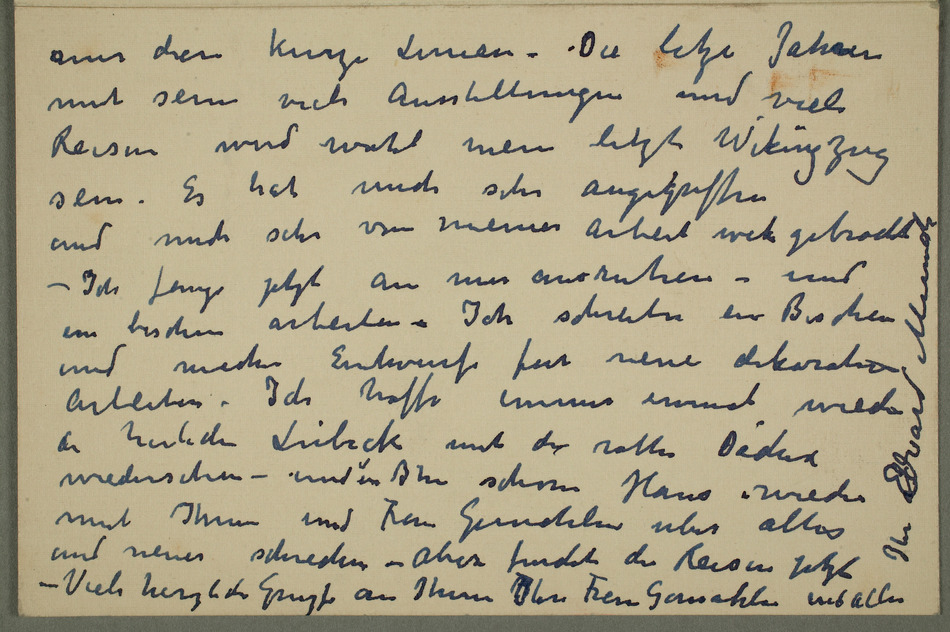 nur diese kurze Linien – Die letze Jahren
mit sein viele Ausstellungen und viele
Reisen wird wohl mein letzte Wikingzug
sein. Es hat mich sehr angegriffen
und mich sehr von meiner Arbeit wek gebracht
– Ich fange jetzt an mir ausruhen – und
ein bischen arbeiten – Ich schreibe ein Bischen
und mache Entwurfe fur neue dekorative
Arbeiten. Ich hoffe immer einmal wieder
die herliche Lübeck mit die rothe Dächer
wiedersehen – und in Ihr schöne Haus wieder
mit Ihnen und Frau Gemahlin uber altes
und neues – aber die Reisen jetzt
– Viele herzliche Grusse an Ihnen Ihre Frau Gemahlin und alle
Ihr Edvard Munch